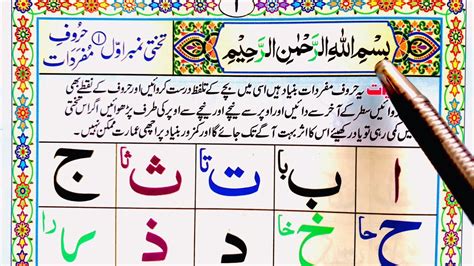 ۱
بِسْمِ اللهِ الرَّحْمٰنِ الرَّحِيْمِ
تختی نمبر اوّل ۱ حُروفِ مفردات
یہ حروف مفردات بنیاد ہیں اسی میں بچے کے تلفظ درست کروائیں اور حروف کے نقطے بھی
دائیں سطر کے آخر سے دائیں اور اوپر سے نیچے اور نیچے سے اوپر کی طرف پڑھوائیں اگر اس
کمی رہی تو یاد رکھیئے اس کا اثر بہت آگے تک جائے گا اور کمزور بنیاد پر اچھی عمارت ممکن نہیں۔
ا ب با ت تا ث ثا ج
ح حا خ خا د ذ ر را